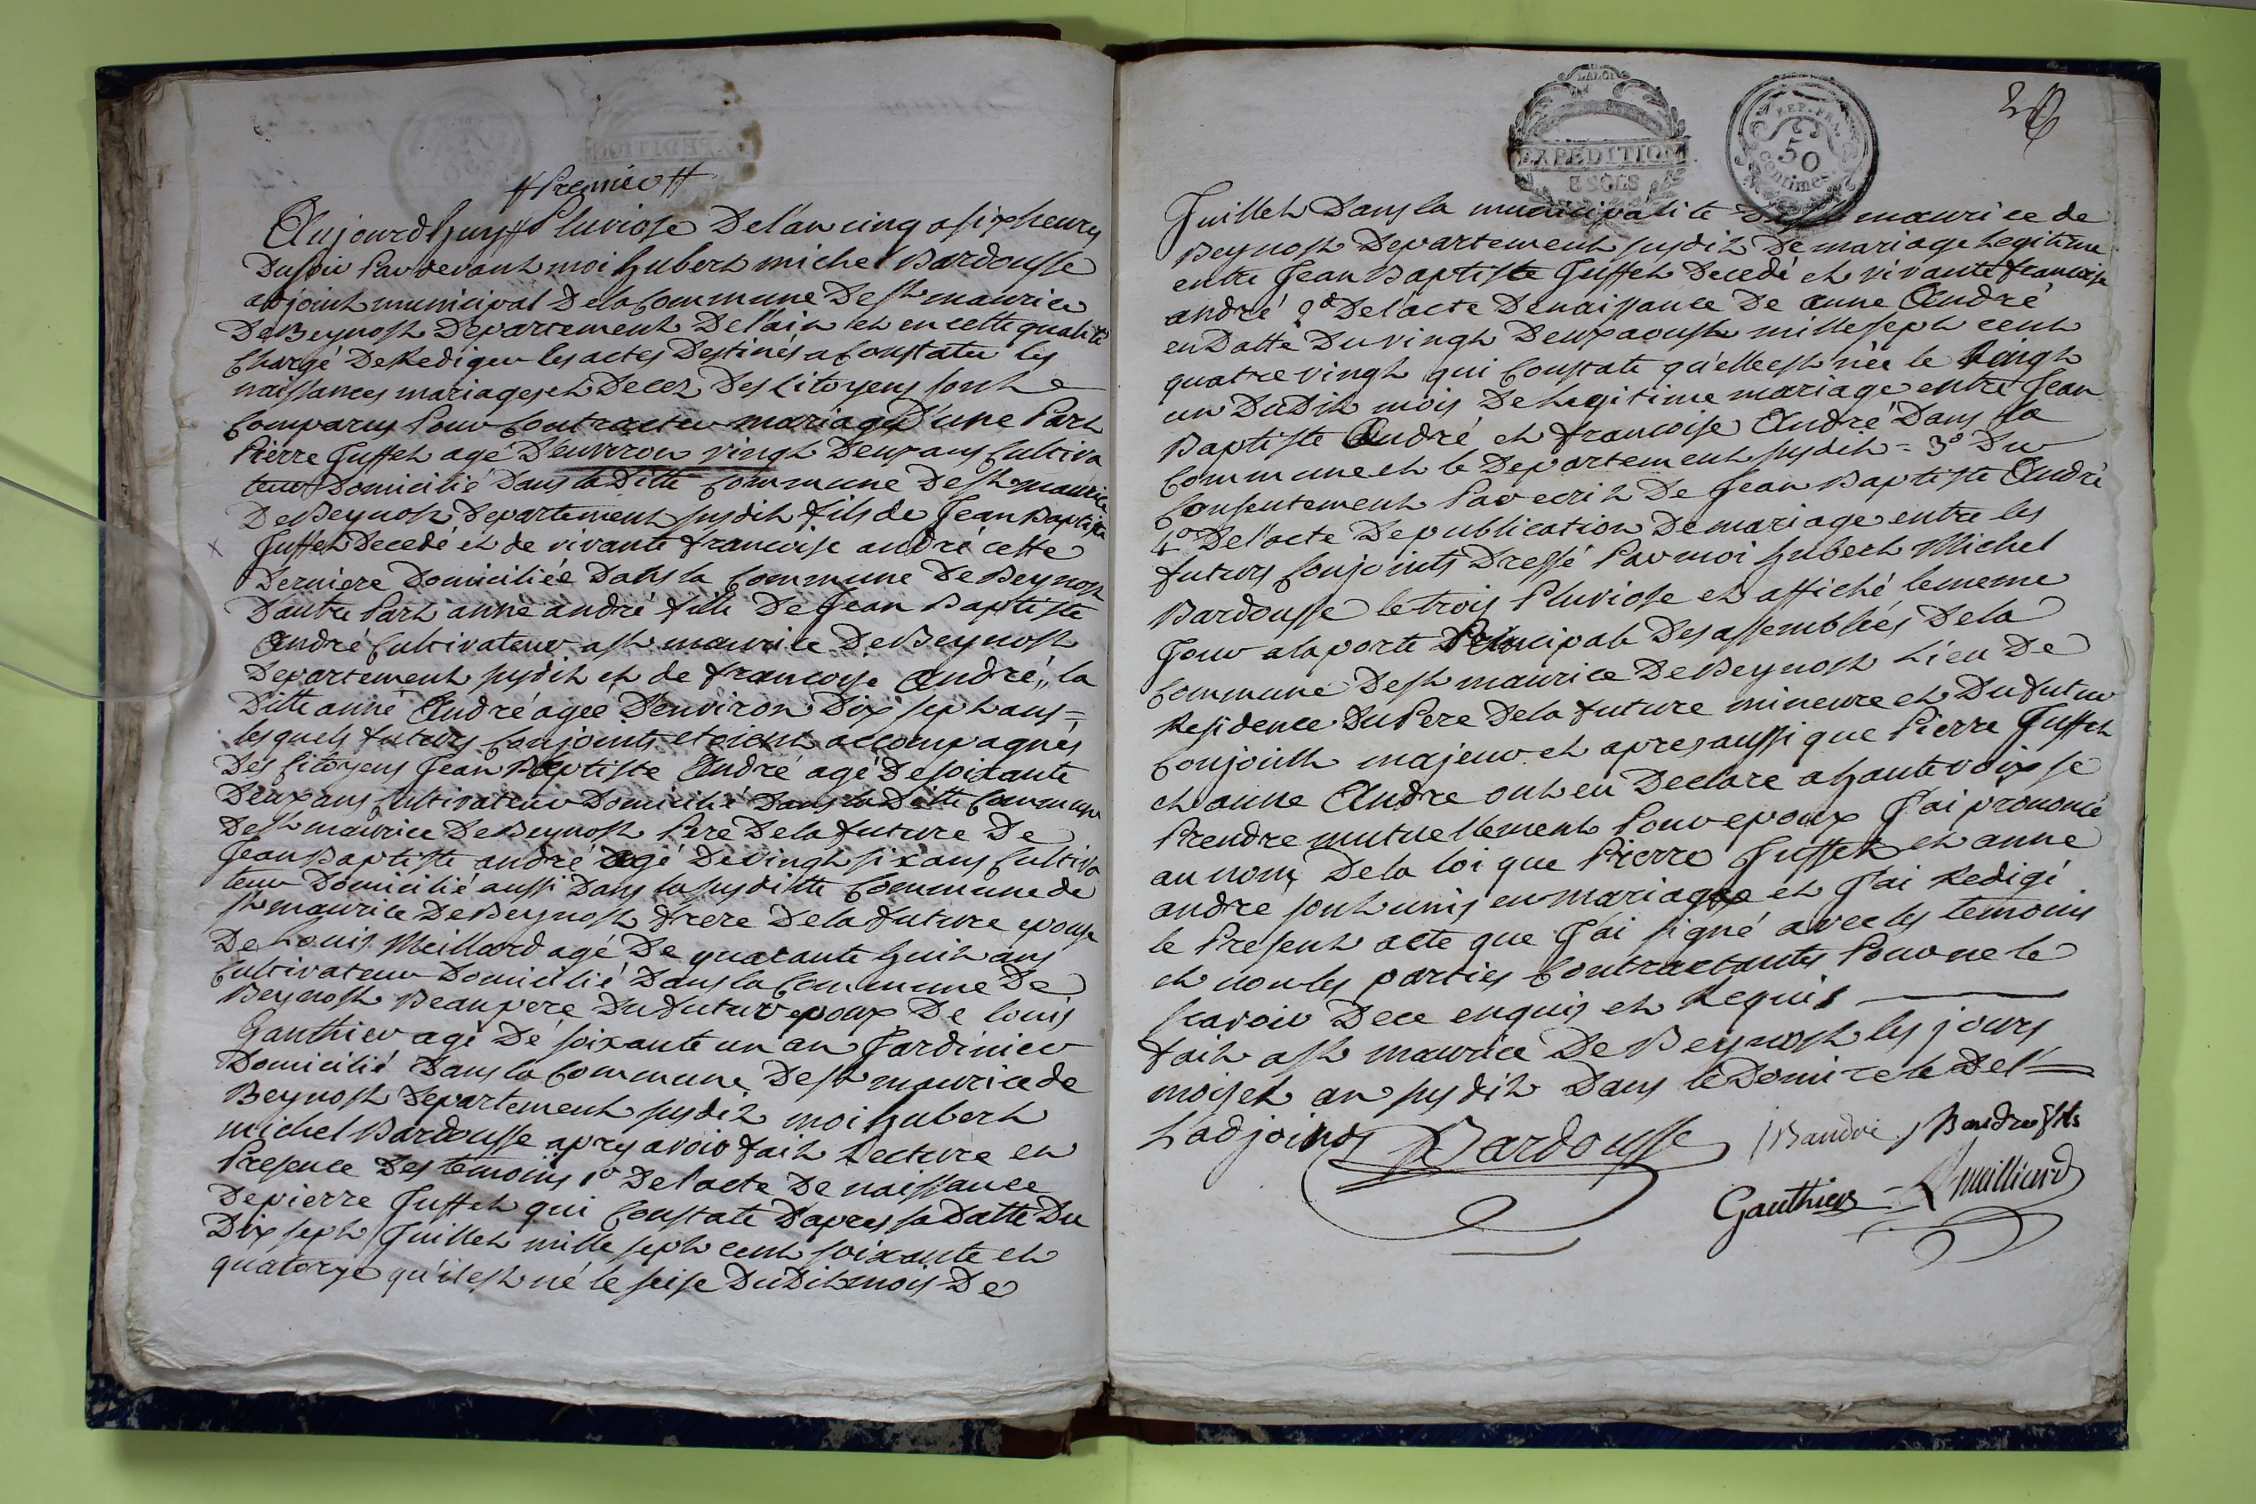 # Premier #
Aujourdhuy # Pluviose De l'an cinq a six heures
Du soir Par devant moi hubert michel Bardousse
adjoint municipal De la Commune De st maurice
De Beynost Departement De l'ain et en cette qualité
Chargé De Rediger les actes Destinés a Constater les
naissances mariages et Decez Des Citoyens sont
Comparus Pour Contracter mariage D'une Part
Pierre Juffet agé D'environ vingt Deux ans Cultiva
teur Domicilié Dans la Ditte Commune De st maurice
De Beynost Departement susdit fils de Jean Baptiste
Juffet Decedé et de vivante francoise andré cette
Derniere Domiciliée Dans la Commune De Beynost
D'autre Part anne andré fille De Jean Baptiste
André Cultivateur a st maurice De Beynost
Departement susdit et de francoise André,, la
Ditte anne André agée D'environ Dix sept ans =
lesquels futurs Conjoints etoient accompagnés
Des Citoyens Jean Baptiste André agé De soixante
Deux ans Cultivateur Domicilié Dans la Ditte Commune
De st maurice De Beynost Pere De la future De
Jean Baptiste andré agé De vingt six ans Cultiva
teur Domicilié aussi Dans la susditte Commune de
st maurice De Beynost frere De la future epouse
De Louis Meillard agé De quarante huit ans
Cultivateur Domicilié Dans la Commune De
Beynost Beaupere Du futur epoux De louis
Gauthier agé De soixante un an Jardinier
Domicilié Dans la Commune De st maurice de
Beynost Departement susdit moi hubert
michel Bardousse apres avoir fait Lecture en
Presence Des temoins 1o De l'acte De naissance
De pierre Juffet qui Constate D'apres sa Datte Du
Dix sept Juillet mille sept cent soixante et
quatorze qu'il est né le seise Du Dit mois De
LA LOI
EXPEDITION
REP. FRA.
50
Centimes
Juillet Dans la municipalité De st maurice de
Beynost Departement susdit De mariage Legitime
entre Jean Baptiste Juffet Decedé et vivante francoise
andré 2o De l'acte De naissance De anne André
en Datte Du vingt Deux aoust mille sept cent
quatre vingt qui Constate qu'elle est née le vingt
un Du Dit mois De Legitime mariage entre Jean
Baptiste André et francoise André Dans la
Commune et le Departement susdit = 3o Du
Consentement Par ecrit De Jean Baptiste André
4o De l'acte De publication De mariage entre les
futurs Conjoints Dressé Par moi hubert Michel
Bardousse le trois Pluviose et affiché le meme
Jour a la porte Principale Des assemblées De la
Commune De st maurice De Beynost Lieu De
Residence Du Pere De la future mineure et Du futur
Conjoint majeur et apres aussi que Pierre Juffet
et anne André ont eu Declaré a haute voix se
Prendre mutuellement Pour epoux J'ai prononcé
au nom De la loi que Pierre Juffet et anne
andre sont unis en mariage et J'ai Redigé
le Present acte que J'ai signé avec les temoins
et non les parties Contractantes Pour ne le
scavoir De ce enquis et Requis
fait a st maurice De Beynost les jours
mois et an susdit Dans le Domicile De l'
L'adjoint Bardousse J Bandré J Bandre fils
Gauthier L meilliard